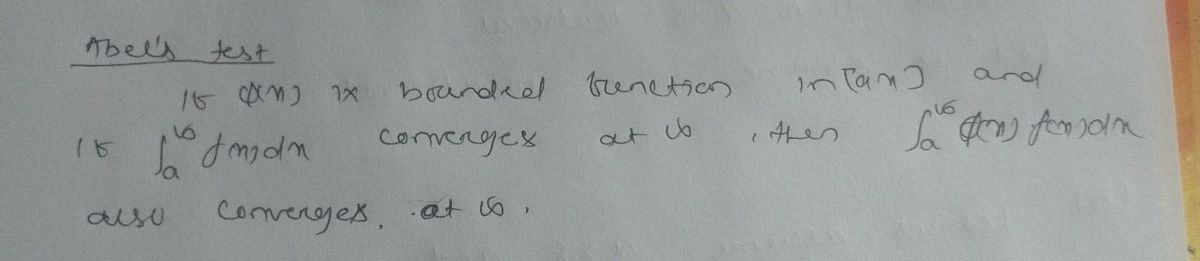 Abel's test
If φ(x) is bounded function in [a x] and
if ∫_a^∞ f(x)dx converges at ∞, then ∫_a^∞ φ(x) f(x)dx
also converges. at ∞.